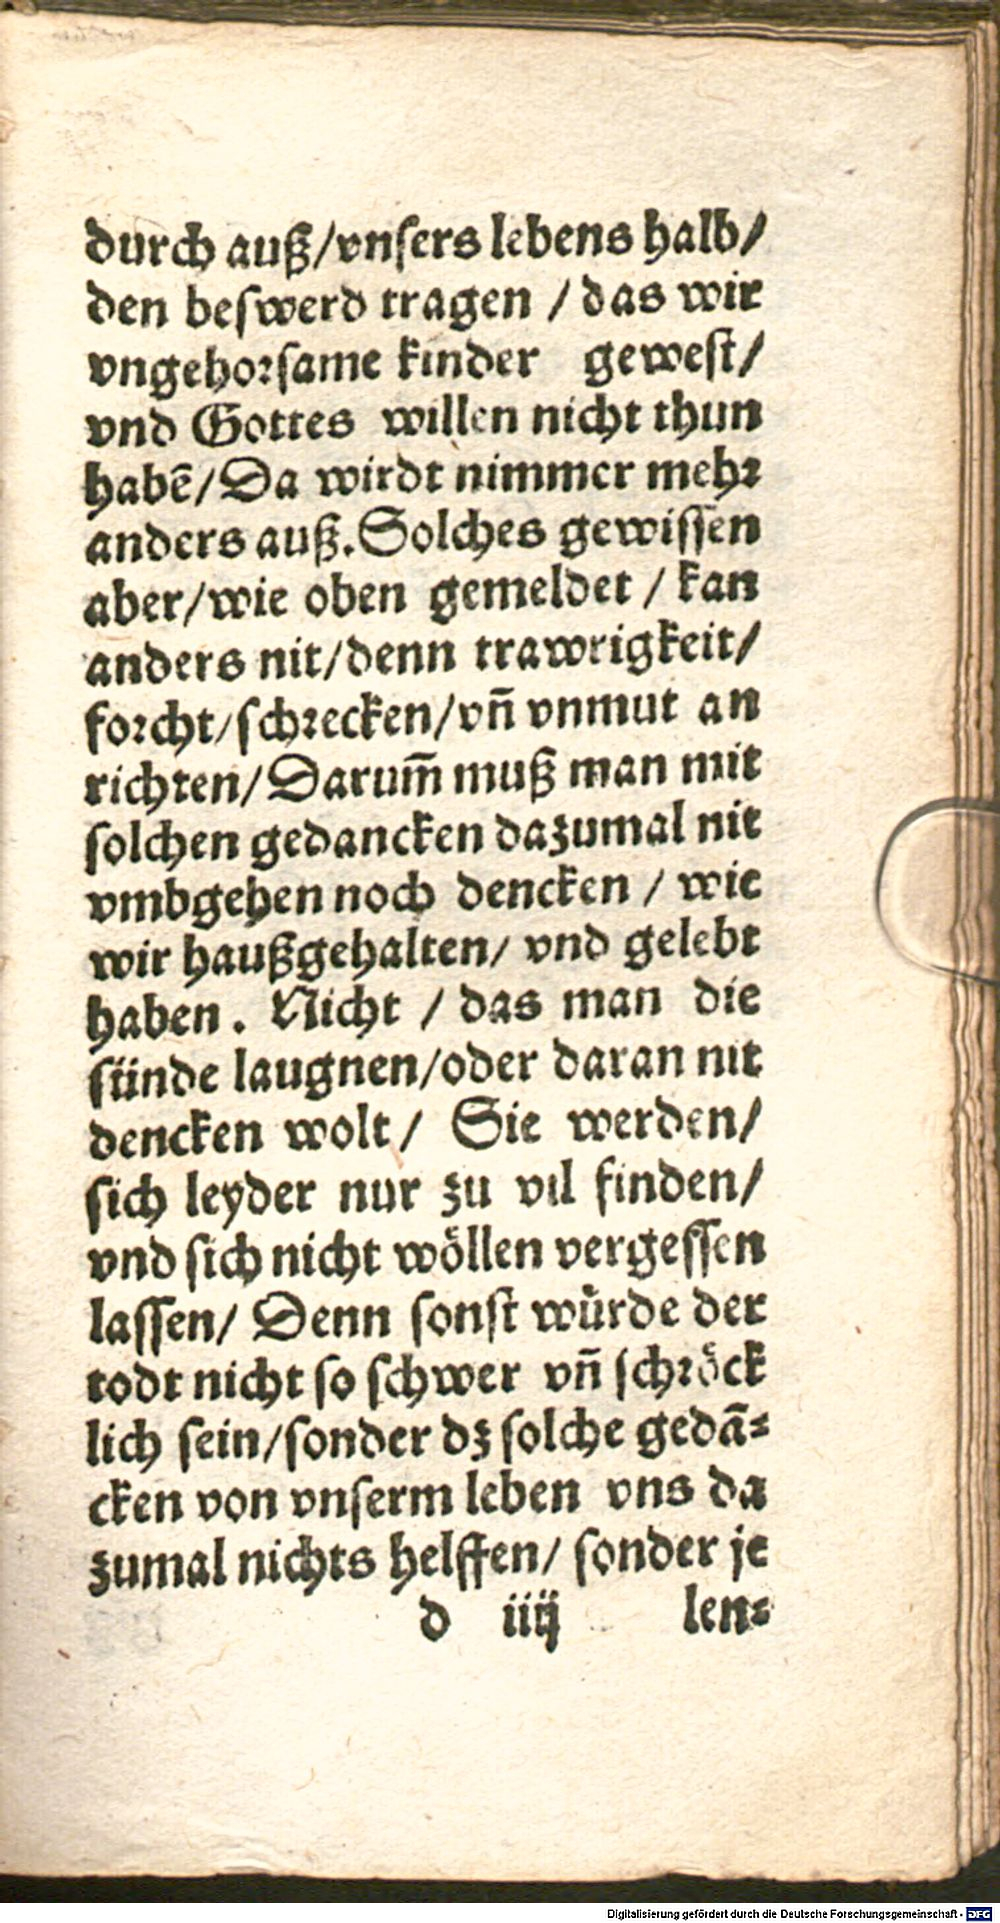 durch auß/vnsers lebens halb/
den beswerd tragen / das wir
vngehorsame kinder gewest/
vnd Gottes willen nicht thun
habẽ/Da wirdt nimmer mehr
anders auß.Solches gewissen
aber/wie oben gemeldet / kan
anders nit/denn trawrigkeit/
forcht/schrecken/vñ vnmut an
richten/Darum̃ muß man mit
solchen gedancken dazumal nit
vmbgehen noch dencken / wie
wir haußgehalten/ vnd gelebt
haben. Nicht / das man die
sünde laugnen/oder daran nit
dencken wolt/ Sie werden/
sich leyder nur zu vil finden/
vnd sich nicht wöllen vergessen
lassen/ Denn sonst würde der
todt nicht so schwer vñ schröck
lich sein/sonder dz solche gedã⸗
cken von vnserm leben vns da
zumal nichts helffen/ sonder je
d iiij len⸗
Digitalisierung gefördert durch die Deutsche Forschungsgemeinschaft - DFG